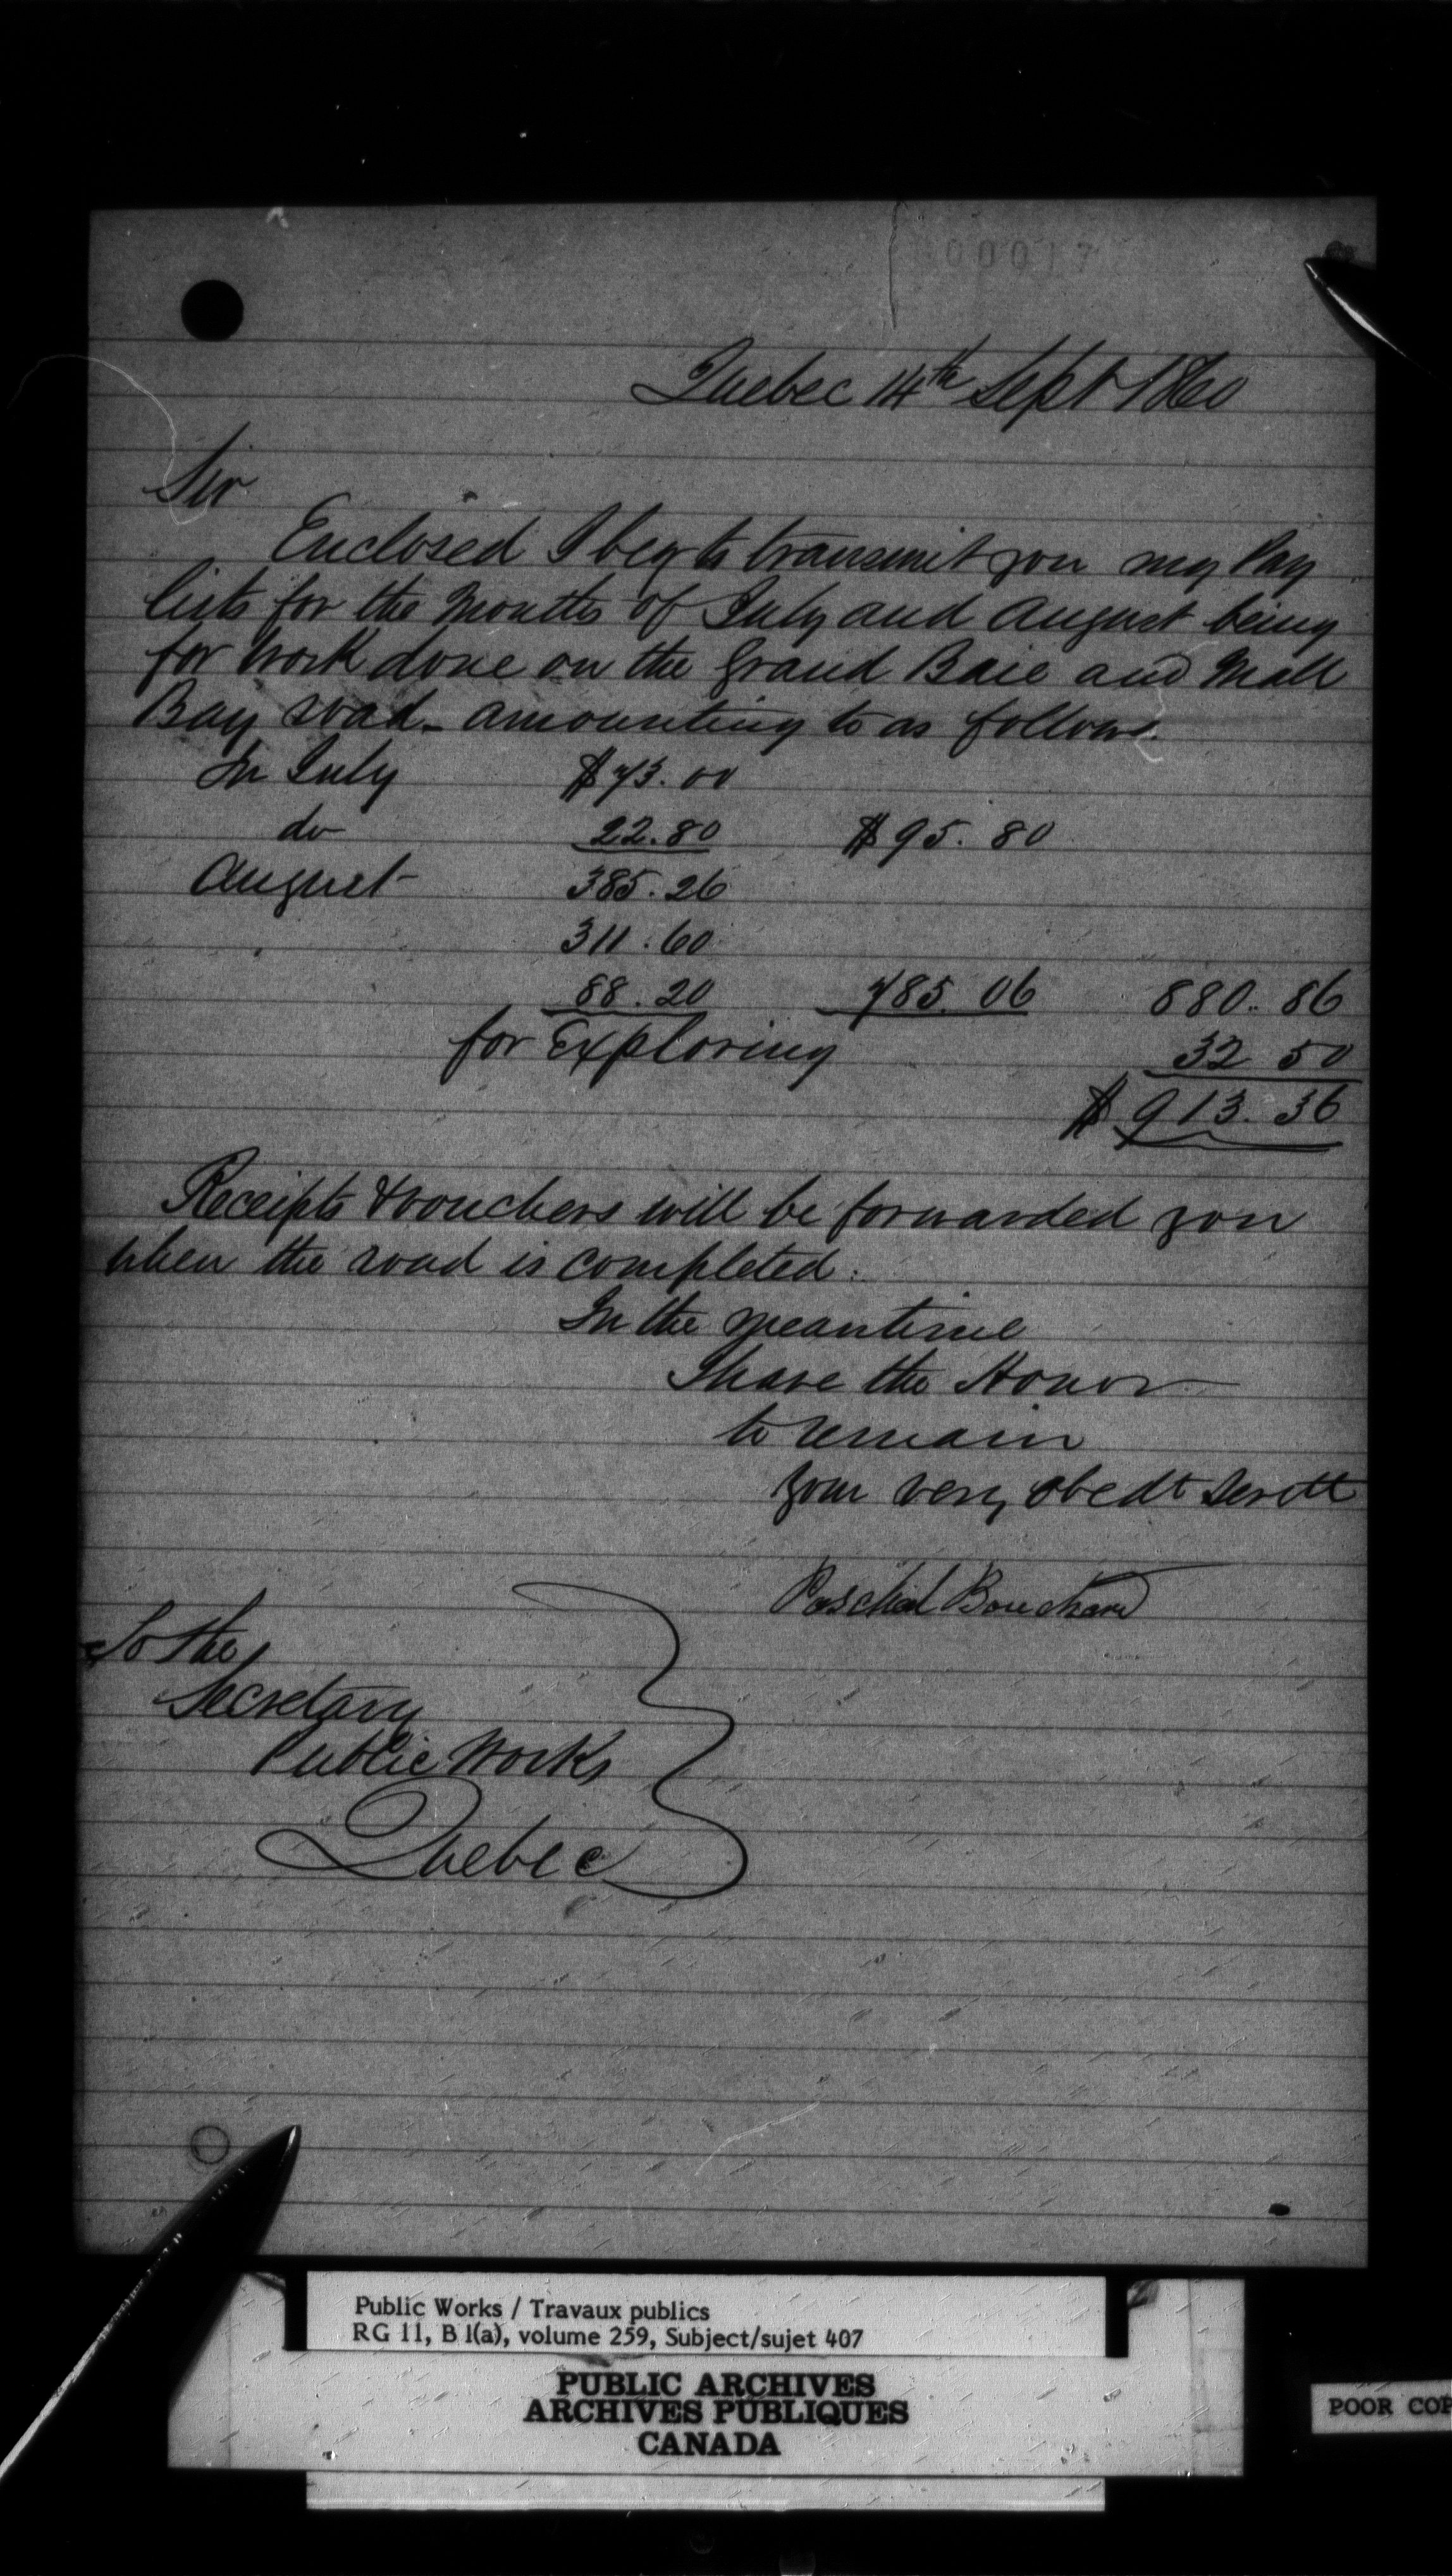 00017
Quebec 14th Sept 1860
Sir
Enclosed I beg to transmit you my Pay
lists for the Months of July and August being
for work done on the Grand Baie and Mall
Bay road - amounting to as follows
In July $73.00
do 22.80 $95.80
August 385.26
311.60
88.20 785.06 880.86
for Exploring 32 50
$913.36
Receipts & vouchers will be forwarded you
when the road is completed.
In the meantime
I have the Honor
to remain
your very obedt servtt
Paschal Bouchard
To the
Secretary
Public Works
Quebec
Public Works / Travaux publics
RG 11, B 1(a), volume 259, Subject/sujet 407
PUBLIC ARCHIVES
ARCHIVES PUBLIQUES
CANADA
POOR COP